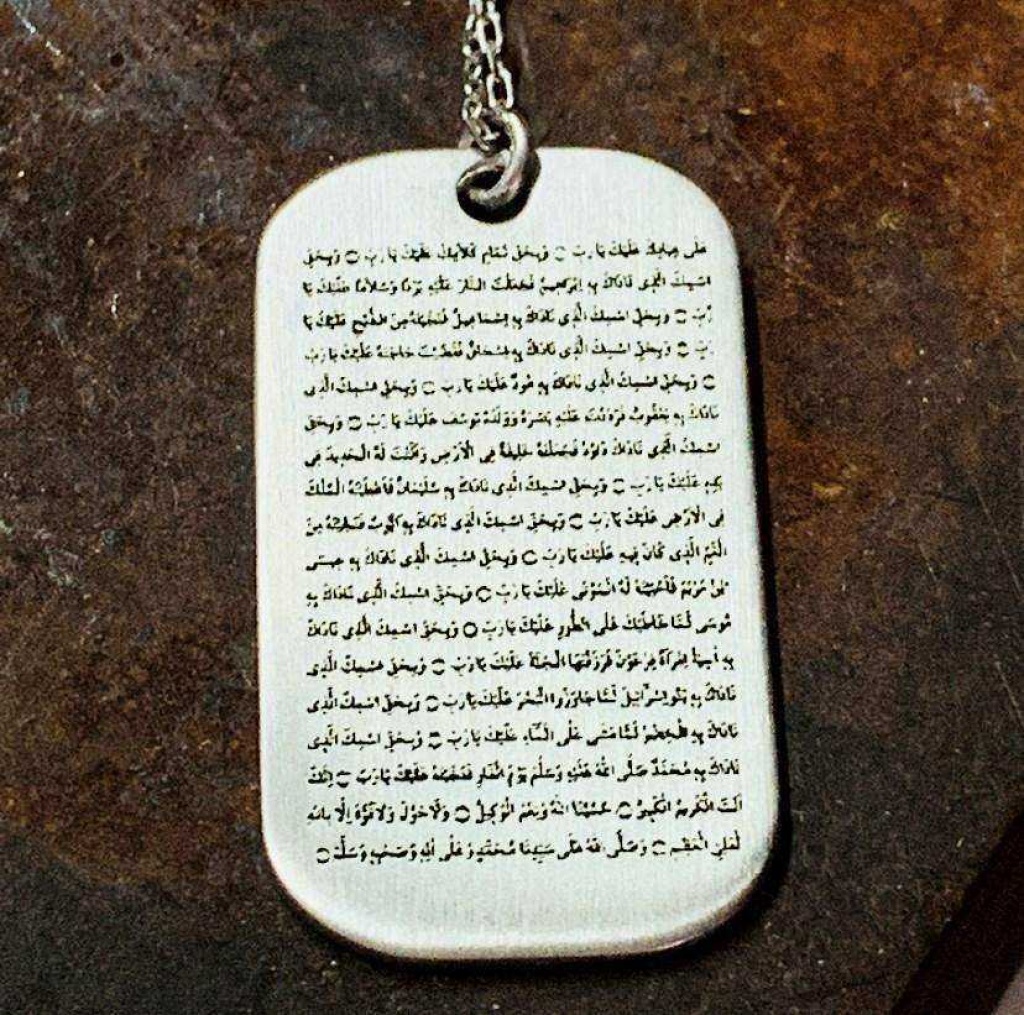 على عبادك عليك يا رب ۝ وبحق تمام كلامك عليك يا رب ۝ وبحق
اسمك الذى ناداك به ابراهيم فجعلت النار عليه بردا وسلاما عليك يا
رب ۝ وبحق اسمك الذى ناداك به اسماعيل فنجيته من الذبح عليك يا
رب ۝ وبحق اسمك الذى ناداك به اسحاق فقضيت حاجته عليك يا رب
۝ وبحق اسمك الذى ناداك به هود عليك يا رب ۝ وبحق اسمك الذى
ناداك به يعقوب فرددت عليه بصره وولده يوسف عليك يا رب ۝ وبحق
اسمك الذى ناداك داود فجعلته خليفة فى الارض وألنت له الحديد فى
يده عليك يا رب ۝ وبحق اسمك الذى ناداك به سليمان فأعطيته الملك
فى الارض عليك يا رب ۝ وبحق اسمك الذى ناداك به ايوب فنجيته من
الغم الذى كان فيه عليك يا رب ۝ وبحق اسمك الذى ناداك به عيسى
ابن مريم فأحييت له الموتى عليك يا رب ۝ وبحق اسمك الذى ناداك به
موسى لما خاطبك على الطور عليك يا رب ۝ وبحق اسمك الذى ناداك
به آسية امرأة فرعون فرزقتها الجنة عليك يا رب ۝ وبحق اسمك الذى
ناداك به بنو إسرائيل لما جاوزوا البحر عليك يا رب ۝ وبحق اسمك الذى
ناداك به الخضر لما مشى على الماء عليك يا رب ۝ وبحق اسمك الذى
ناداك به محمد صلى الله عليه وسلم يوم الغار فنجيته عليك يا رب ۝ انك
انت الكريم الكبير ۝ حسبنا الله ونعم الوكيل ۝ ولا حول ولا قوة إلا بالله
العلى العظيم ۝ وصلى الله على سيدنا محمد وعلى آله وصحبه وسلم ۝